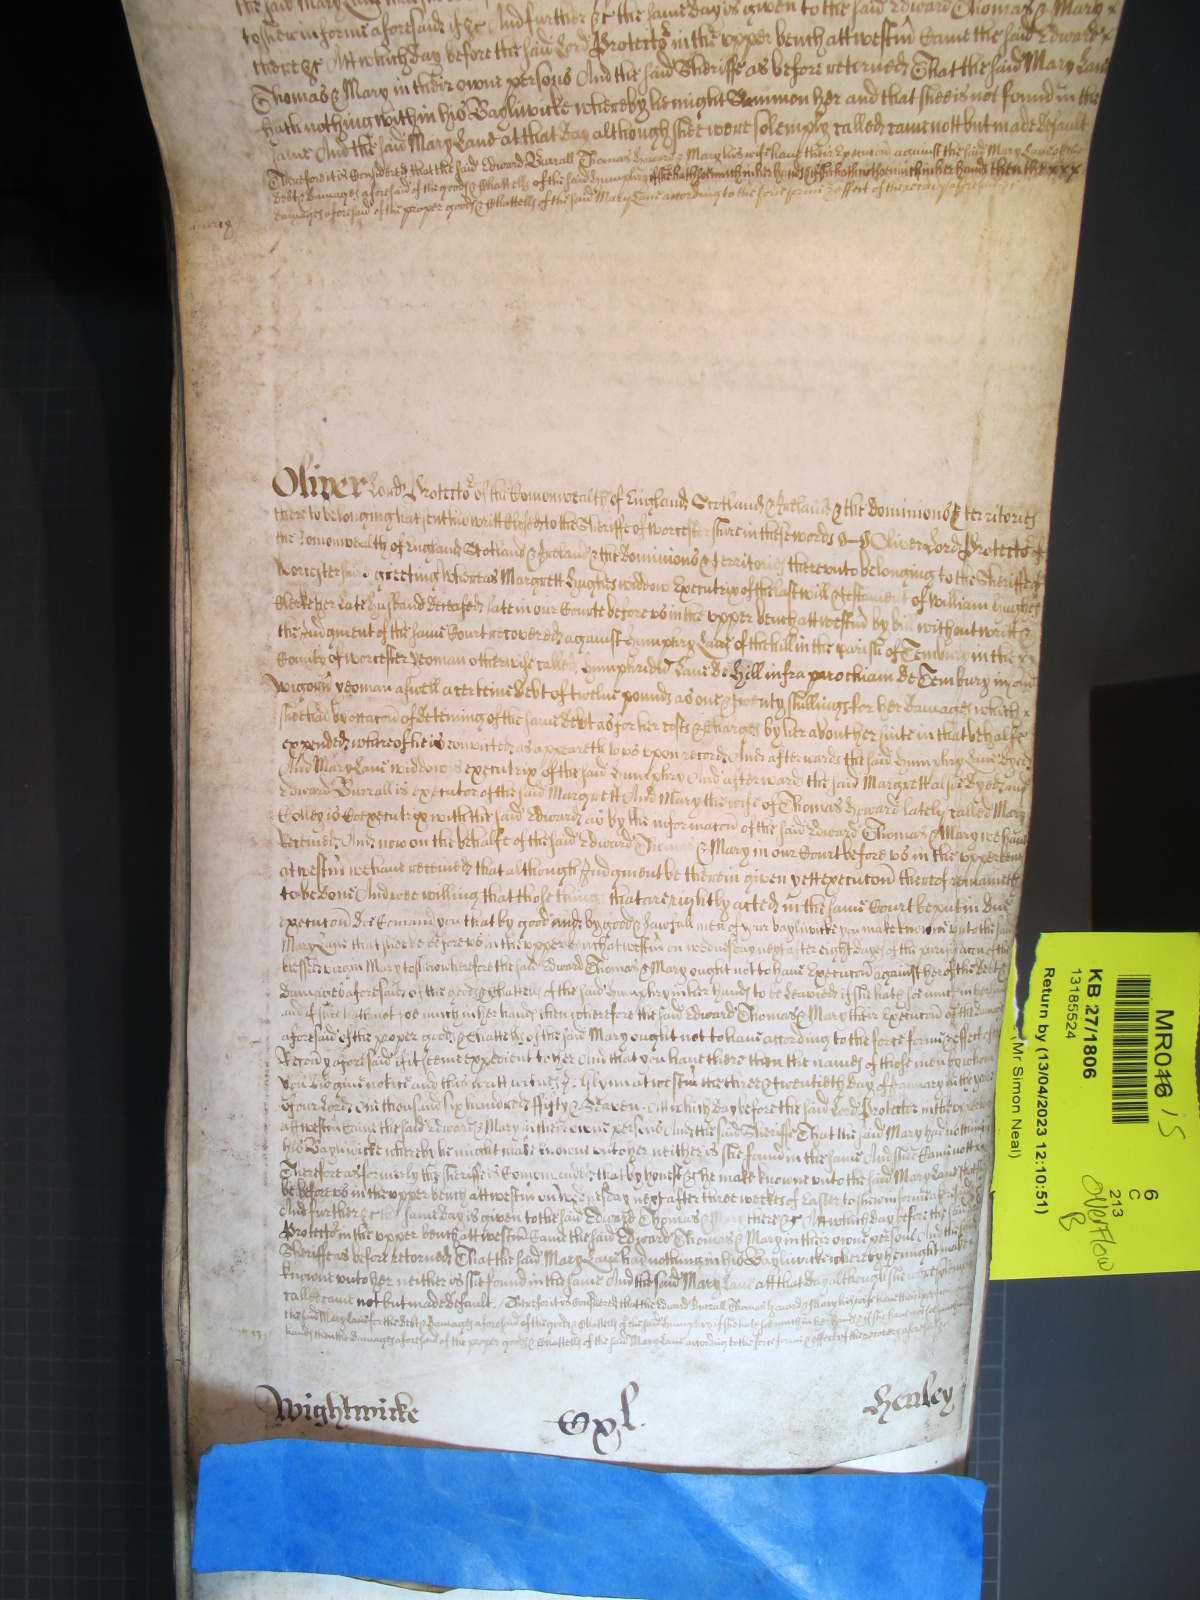 the said Mary Lane
to shew in forme aforesaid if &c And further &c the same day is given to the said Edward Thomas & Mary
there &c Att which day before the said Lord Protector in the upper bench att westm Came the said Edward
Thomas & Mary in their owne persons And the said Sheriffe as before returned That the said Mary Lane
hath nothing within his Bayliwicke whereby he might Sommon her and that shee is not found in the
same And the said Mary Lane at that day although shee were solemply called came nott but made default
Therefore it is Considered that the said Edward Burrall Thomas Howard & Mary his wife have their Execucon against the said Mary Lane of the
debt & damages aforesaid of the goods & Chattells of the said Humphry if shee hath soe much in her hands & if shee hath not soe much in her hands then the xxx
damages aforesaid of the proper goods & Chattells of the said Mary Lane according to the force forme & effect of the recovery aforesaid &c
Oliver Lord Protector of the Comonwealth of England Scotland & Ireland & the dominions & territories
thereto belonging hath sent his writt closed to the Sheriffe of Worcestershire in these words Oliver Lord Protector of
the Comonwealth of England Scotland & Ireland & the dominions & territories thereunto belonging to the Sheriffe of
Worcestershire greeting Whereas Margrett Hughes widdow Executrix of the last will & testament of William Hughes
Clerke her late husband deceased late in our Courte before us in the upper bench att westm by bill without writt &
the Judgment of the same Court recovered against Humphry Lane of the hill in the parish of Tembury in the
County of Worcester yeoman otherwise called Humphridus Lane de Hill infra parochiam de Tembury in Com
Wigorn yeoman aswell a certeine debt of twelve pounds as one & twenty shillings for her damages which
shee had by occacon of deteining of the same debt as for her costs & Charges by her about her suite in that behalfe
expended whereof he is convicted as appeareth to us upon record And afterwards the said Humphry Lane dyed
And Mary Lane widdow is executrix of the said Humphry And afterwards the said Margrett alsoe dyed and
Edward Burrall is executor of the said Margrett And Mary the wife of Thomas Howard lately called Mary
Colley is Coexecutrix with the said Edward as by the informacon of the said Edward Thomas & Mary we have
received And now on the behalfe of the said Edward Thomas & Mary in our Court before us in the upper bench
at westm we have received that although Judgment be therein given yett execucon thereof remaineth
to be done And wee willing that those things that are rightly acted in the same Court be put in due
execucon doe Comand you that by good and by good & lawfull men of your bayliwicke you make knowne unto the said
Mary Lane that shee be before us in the upper bench at westm on wednesday next after eight dayes of the purificacon of the
blessed virgin Mary to shew wherefore the said Edward Thomas & Mary ought not to have Execucon against her of the debt &
damages aforesaid of the goods & Chattells of the said Humphry in her hands to be levied if shee hath soe much in her
and if shee hath not soe much in her hands then wherefore the said Edward Thomas & Mary their Execucon of the damages
aforesaid of the proper goods & Chattells of the said Mary ought not to have according to the force forme & effect of the
Recovery aforesaid if it seeme expedient to her And that you have there then the names of those men by whom
you doe give notice and this writt witnes J: Glynn at westm the three & twentieth day of January in the yeare
of our Lord One thousand six hundred ffifty & Seaven. Att which day before the said Lord Protector in the upper bench
at westm Came the said Edward & Mary in their owne persons And the said Sheriffe That the said Mary had nothing in
his Bayliwicke whereby he might make knowne unto her neither is shee found in the same And shee Came not
Therefore as formerly the sheriffe is Commanded that by honest &c he make knowne unto the said Mary Lane that shee
be before us in the upper bench att westm on Wednesday next after three weekes of Easter to shew in forme aforesaid
And further &c the same day is given to the said Edward Thomas & Mary there &c Att which day before the said Lord
Protector in the upper bench att westm Came the said Edward Thomas & Mary in their owne persons And the said
Sheriffe as before returned That the said Mary Lane had nothing in his Bayliwicke whereby he might make
knowne unto her neither is shee found in the same And the said Mary Lane att that day although shee were solemply
called came not but made default. Therefore it is considered that the Edward Burrall Thomas Howard & Mary his wife have their
the said Mary Lane for the debt & Damages aforesaid of the goods & Chattells of the said Humphry if shee hath soe much in her hands & if shee have not soe much in her
hands then the damages aforesaid of the proper goods & Chattells of the said Mary Lane according to the force forme & effect of the recovery aforesaid
Wightwicke
Henley
MR046 / S
KB 27/1806
13185524
Return by (13/04/2023 12:10:51)
Mr Simon Neal)
6
C
213
Overflow
B